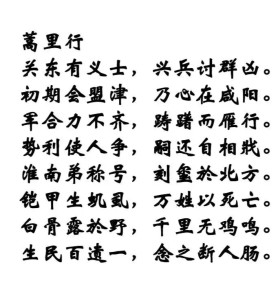 蒿里行
关东有义士，兴兵讨群凶。
初期会盟津，乃心在咸阳。
军合力不齐，踌躇而雁行。
势利使人争，嗣还自相戕。
淮南弟称号，刻玺於北方。
铠甲生虮虱，万姓以死亡。
白骨露於野，千里无鸡鸣。
生民百遗一，念之断人肠。